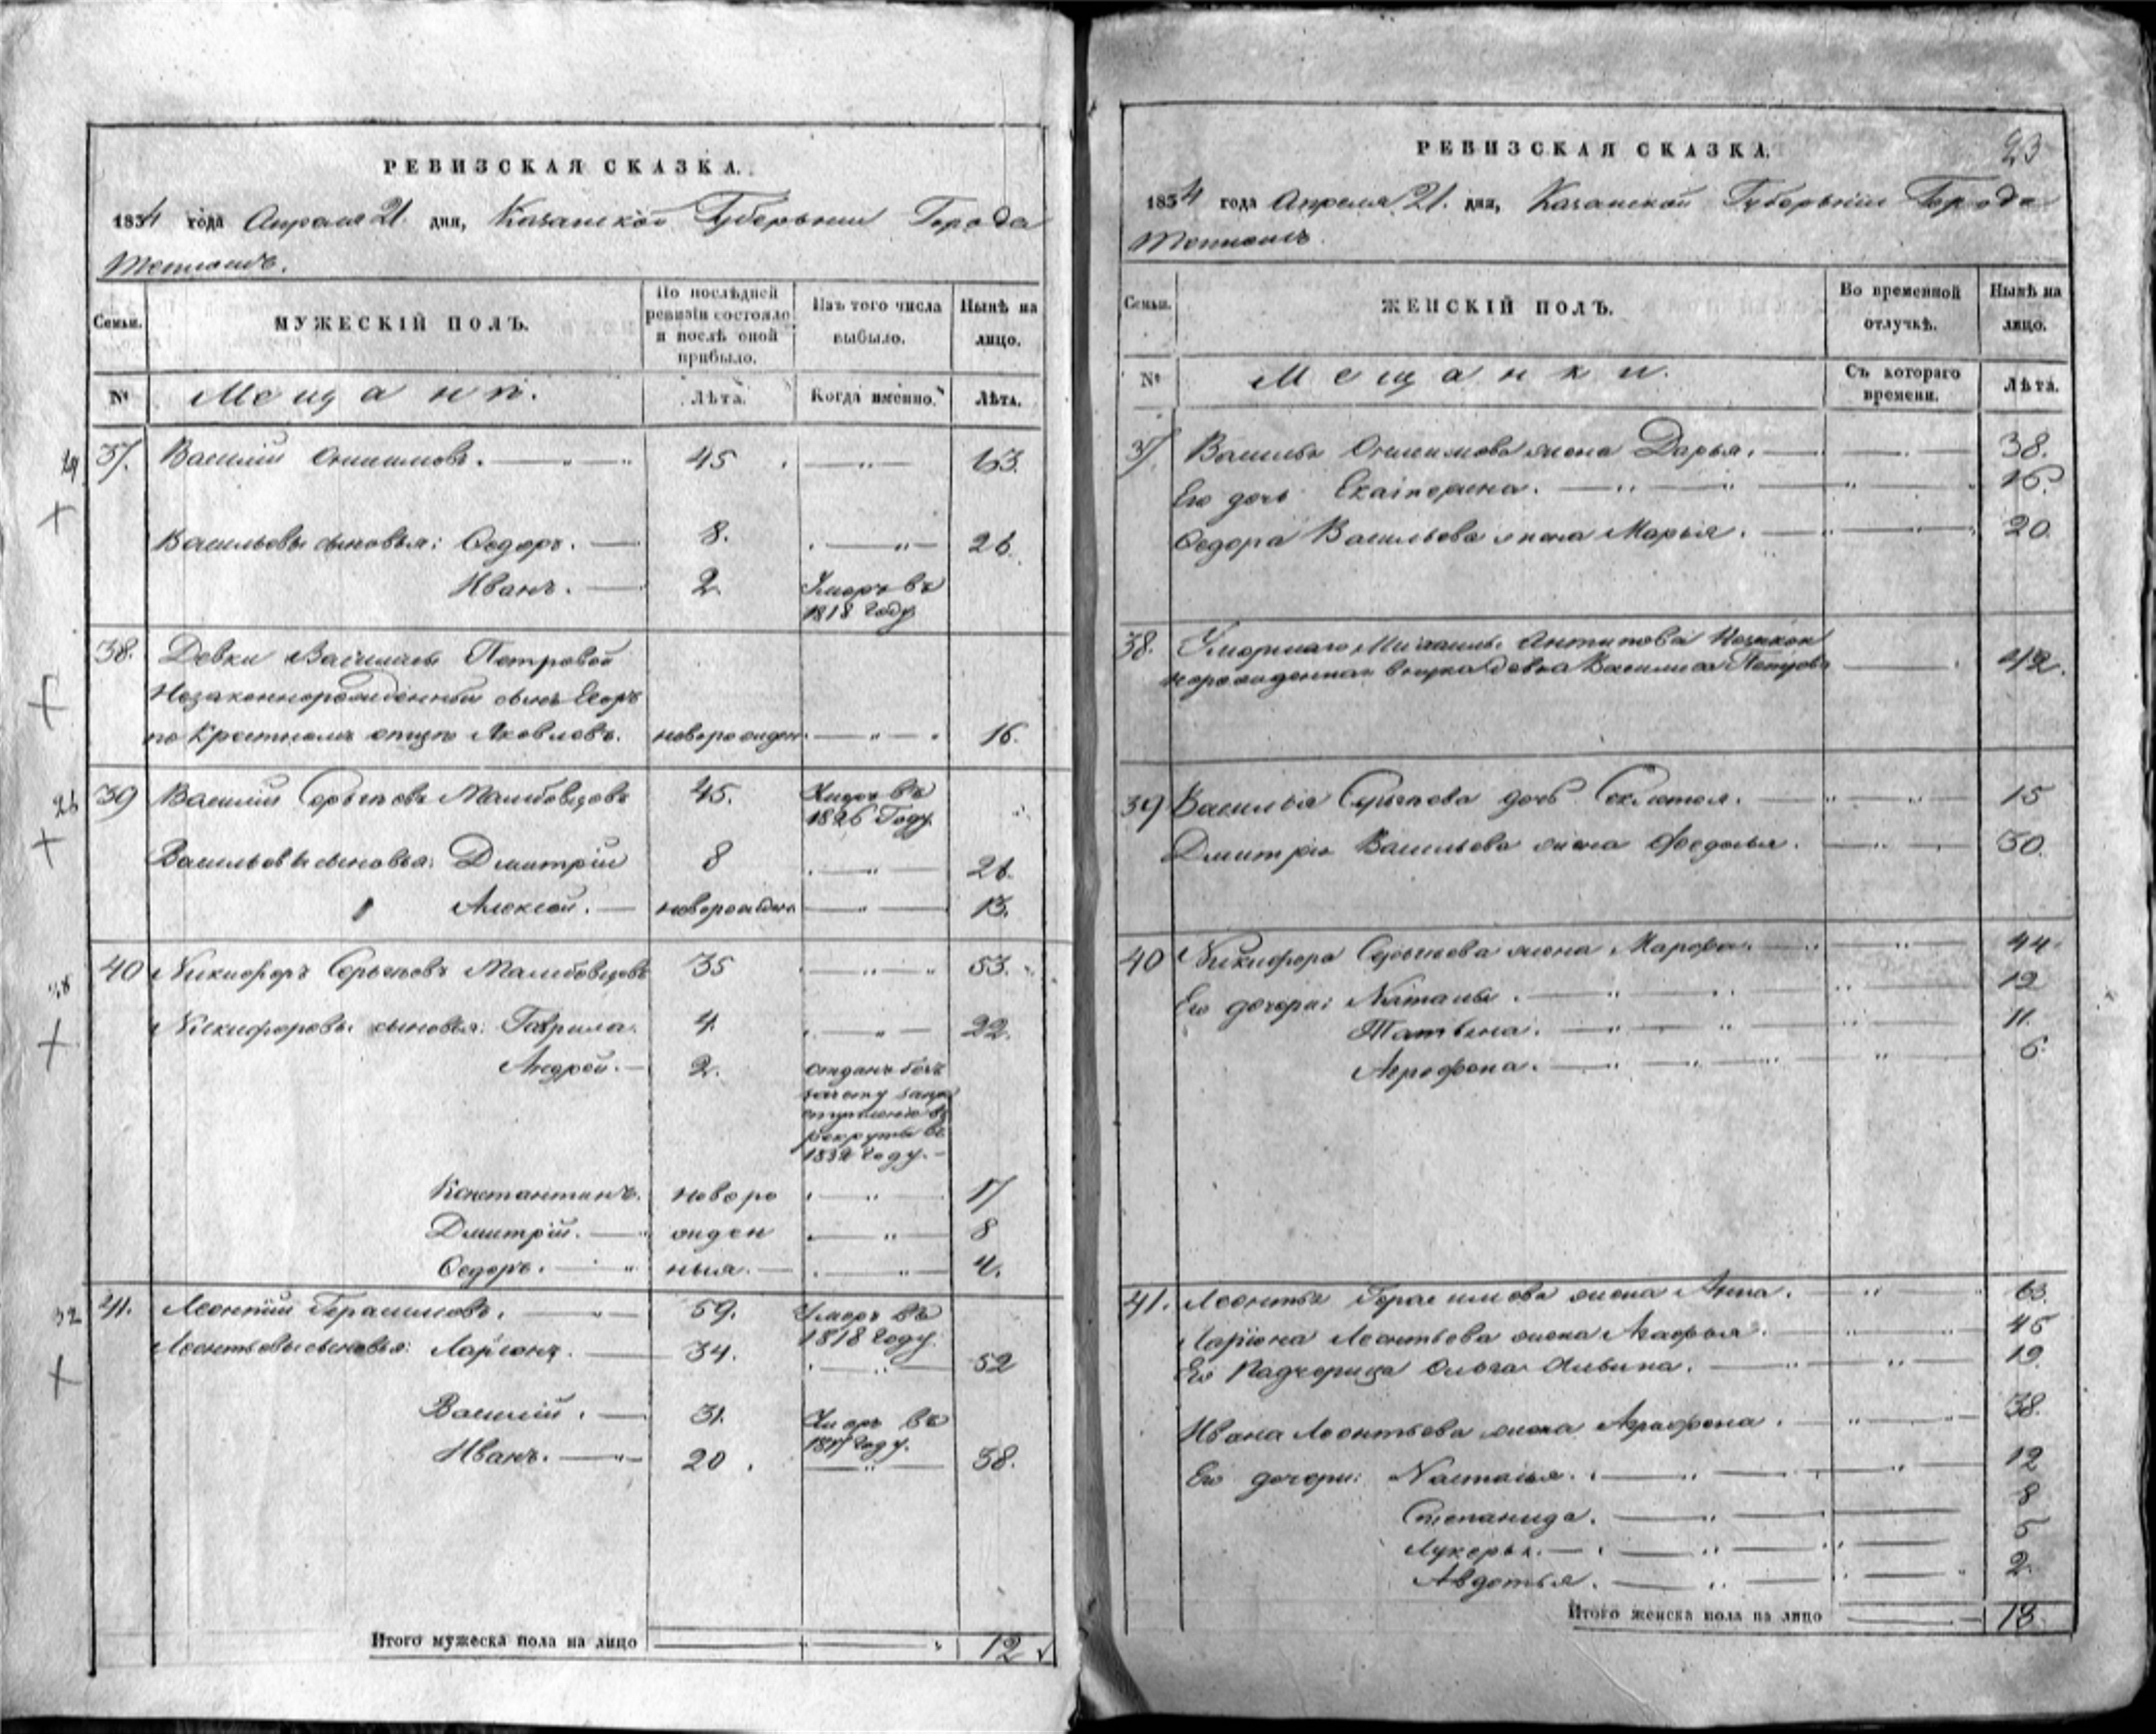 РЕВИЗСКАЯ СКАЗКА.
1834 года Апреля 21. дня, Казанской Губернии Города
Семьи.
МУЖЕСКІЙ ПОЛЪ.
По послѣдней ревизіи состояло и послѣ оной прибыло.
Изъ того числа выбыло.
Нынѣ на лицо.
№
Мещанп.
Лѣта.
Когда именно.
Лѣта.
37. Василій Онисимовъ. 45 63.
Васильевы сыновья: Ѳедоръ. 8. 26.
Иванъ. 2. Умеръ въ
1818 году
38. Девки Василисы Петровой
Незаконнорожденный сынъ Егоръ
по Крестному отцу Яковлевъ. новорожден 16.
39 Василій Сергѣевъ 45. Умеръ въ
1826 Году
Васильевы сыновья: Дмитрій 8 26.
Алексей. новорожден 13.
40 Никифоръ Сергѣевъ 35 53.
Никифоровы сыновья: Гаврила. 4. 22.
Андрей. 2. отданъ безъ
зачету
рекруты въ
1832 году.
Константинъ. новоро 17
Дмитрій. жден 8
Ѳедоръ. ныя. 4.
41. Леонтій Герасимовъ. 59. Умеръ въ
1818 году.
Леонтьевы сыновья: Ларіонъ. 34. 52
Василій. 31. Умеръ въ
1817 году.
Иванъ. 20. 38.
Итого мужеска пола на лицо 12
23
РЕВИЗСКАЯ СКАЗКА.
1834 года Апреля 21. дня, Казанской Губерніи Города
Семьи.
ЖЕНСКІЙ ПОЛЪ.
Во временной отлучкѣ.
Нынѣ на лицо.
№
Мещанки.
Съ котораго времени.
Лѣта.
37 Василья Онисимова жена Дарья. 38.
Его дочь Екатерина. 16.
Ѳедора Васильева жена Марья. 20.
38. Умершаго Антипова Незакон
норожденная внука девка Василиса Петрова 42.
39 Василья Сергѣева дочь 15
Дмитрія Васильева жена Ѳедосья. 30.
40 Никифора Сергѣева жена Марфа. 44
Его дочери: Наталья. 12
Татьяна. 11.
Агрофена. 6.
41. Леонтья Герасимова жена Анна. 63.
Ларіона Леонтьева жена Агафья. 45
Его Падчерица Ольга 19.
Ивана Леонтьева жена Агрофена. 38.
Его дочери: Настасья. 12
Степанида. 8
Лукерья. 5
Авдотья. 2.
Итого женска пола на лицо 18.